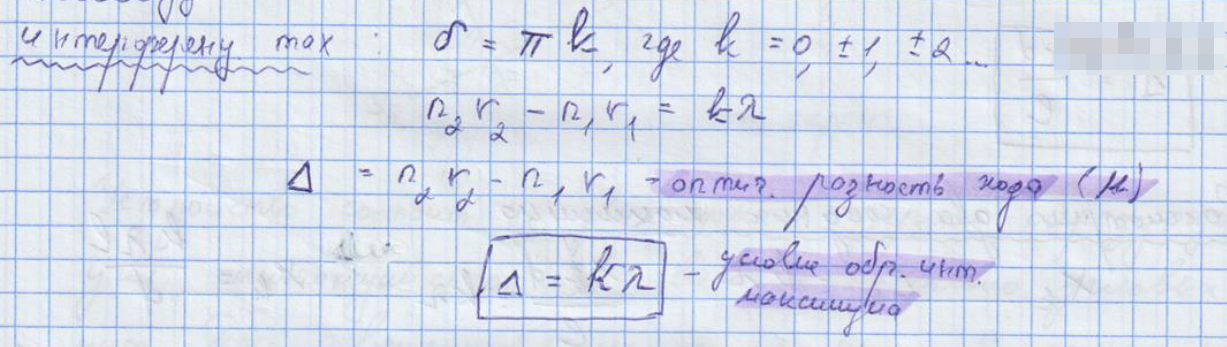 интерференц. max : δ = π k, где k = 0, ±1, ±2...
n₂ r₂ - n₁ r₁ = kλ
Δ = n₂ r₂ - n₁ r₁ - оптич. разность хода (м)
Δ = kλ - условие обр. инт.
максимума